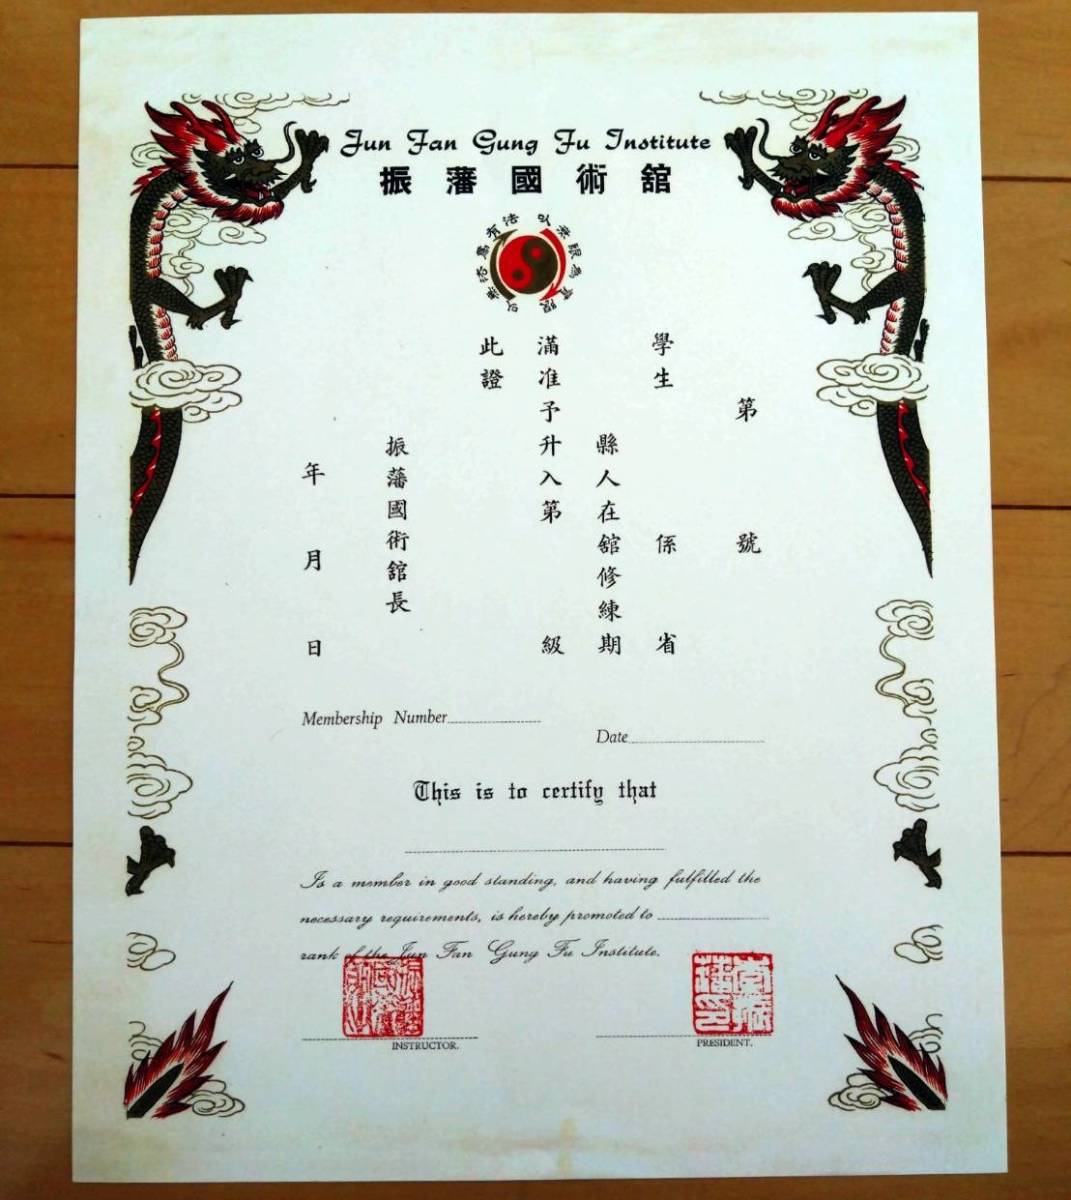 Jun Fan Gung Fu Institute
振藩國術舘
以無法為有法
以無限為有限
第 號
學生 係 省
縣人在舘修練期
滿准予升入第 級
此證
振藩國術舘長
年 月 日
Membership Number
Date
This is to certify that
Is a member in good standing, and having fulfilled the
necessary requirements, is hereby promoted to
rank of the Jun Fan Gung Fu Institute.
INSTRUCTOR.
PRESIDENT.